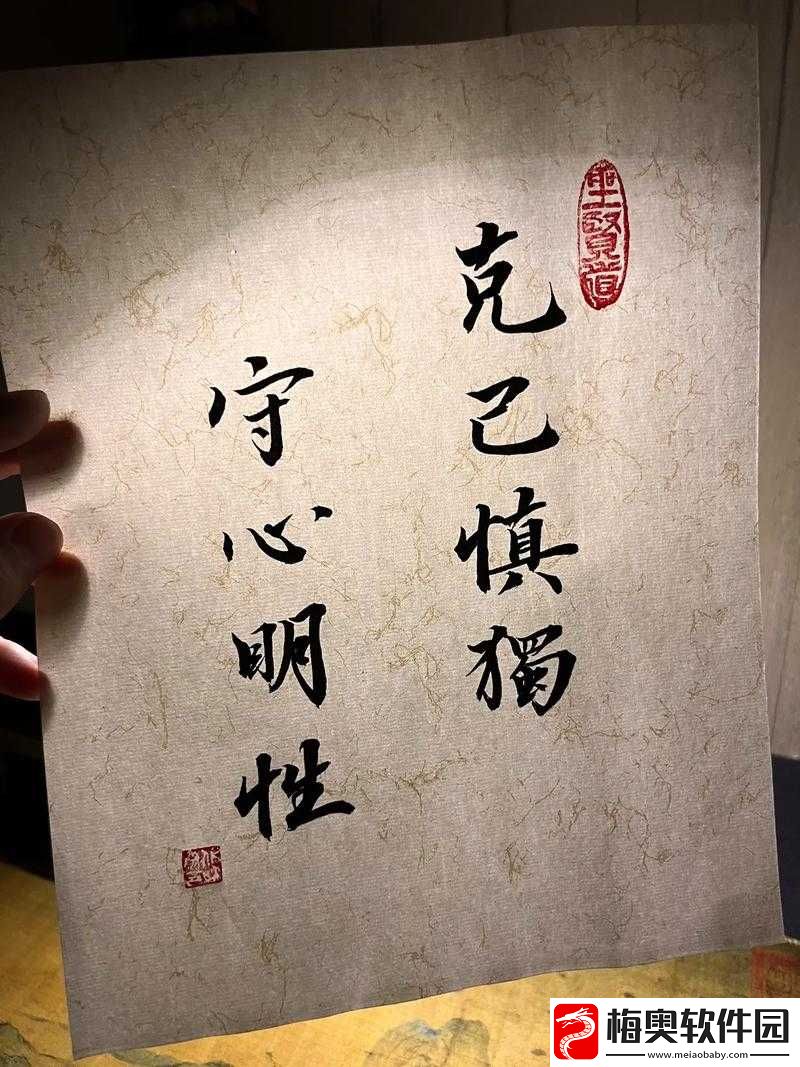 聖賢道
克己慎獨
守心明性
梅奥软件园
www.meiaobaby.com